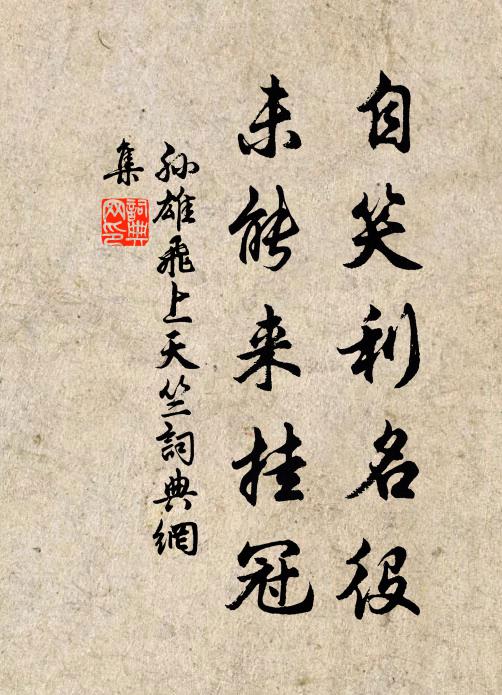 自笑利名役
未能来挂冠
孙雄飛上天竺詞典網
集
詞典
网印